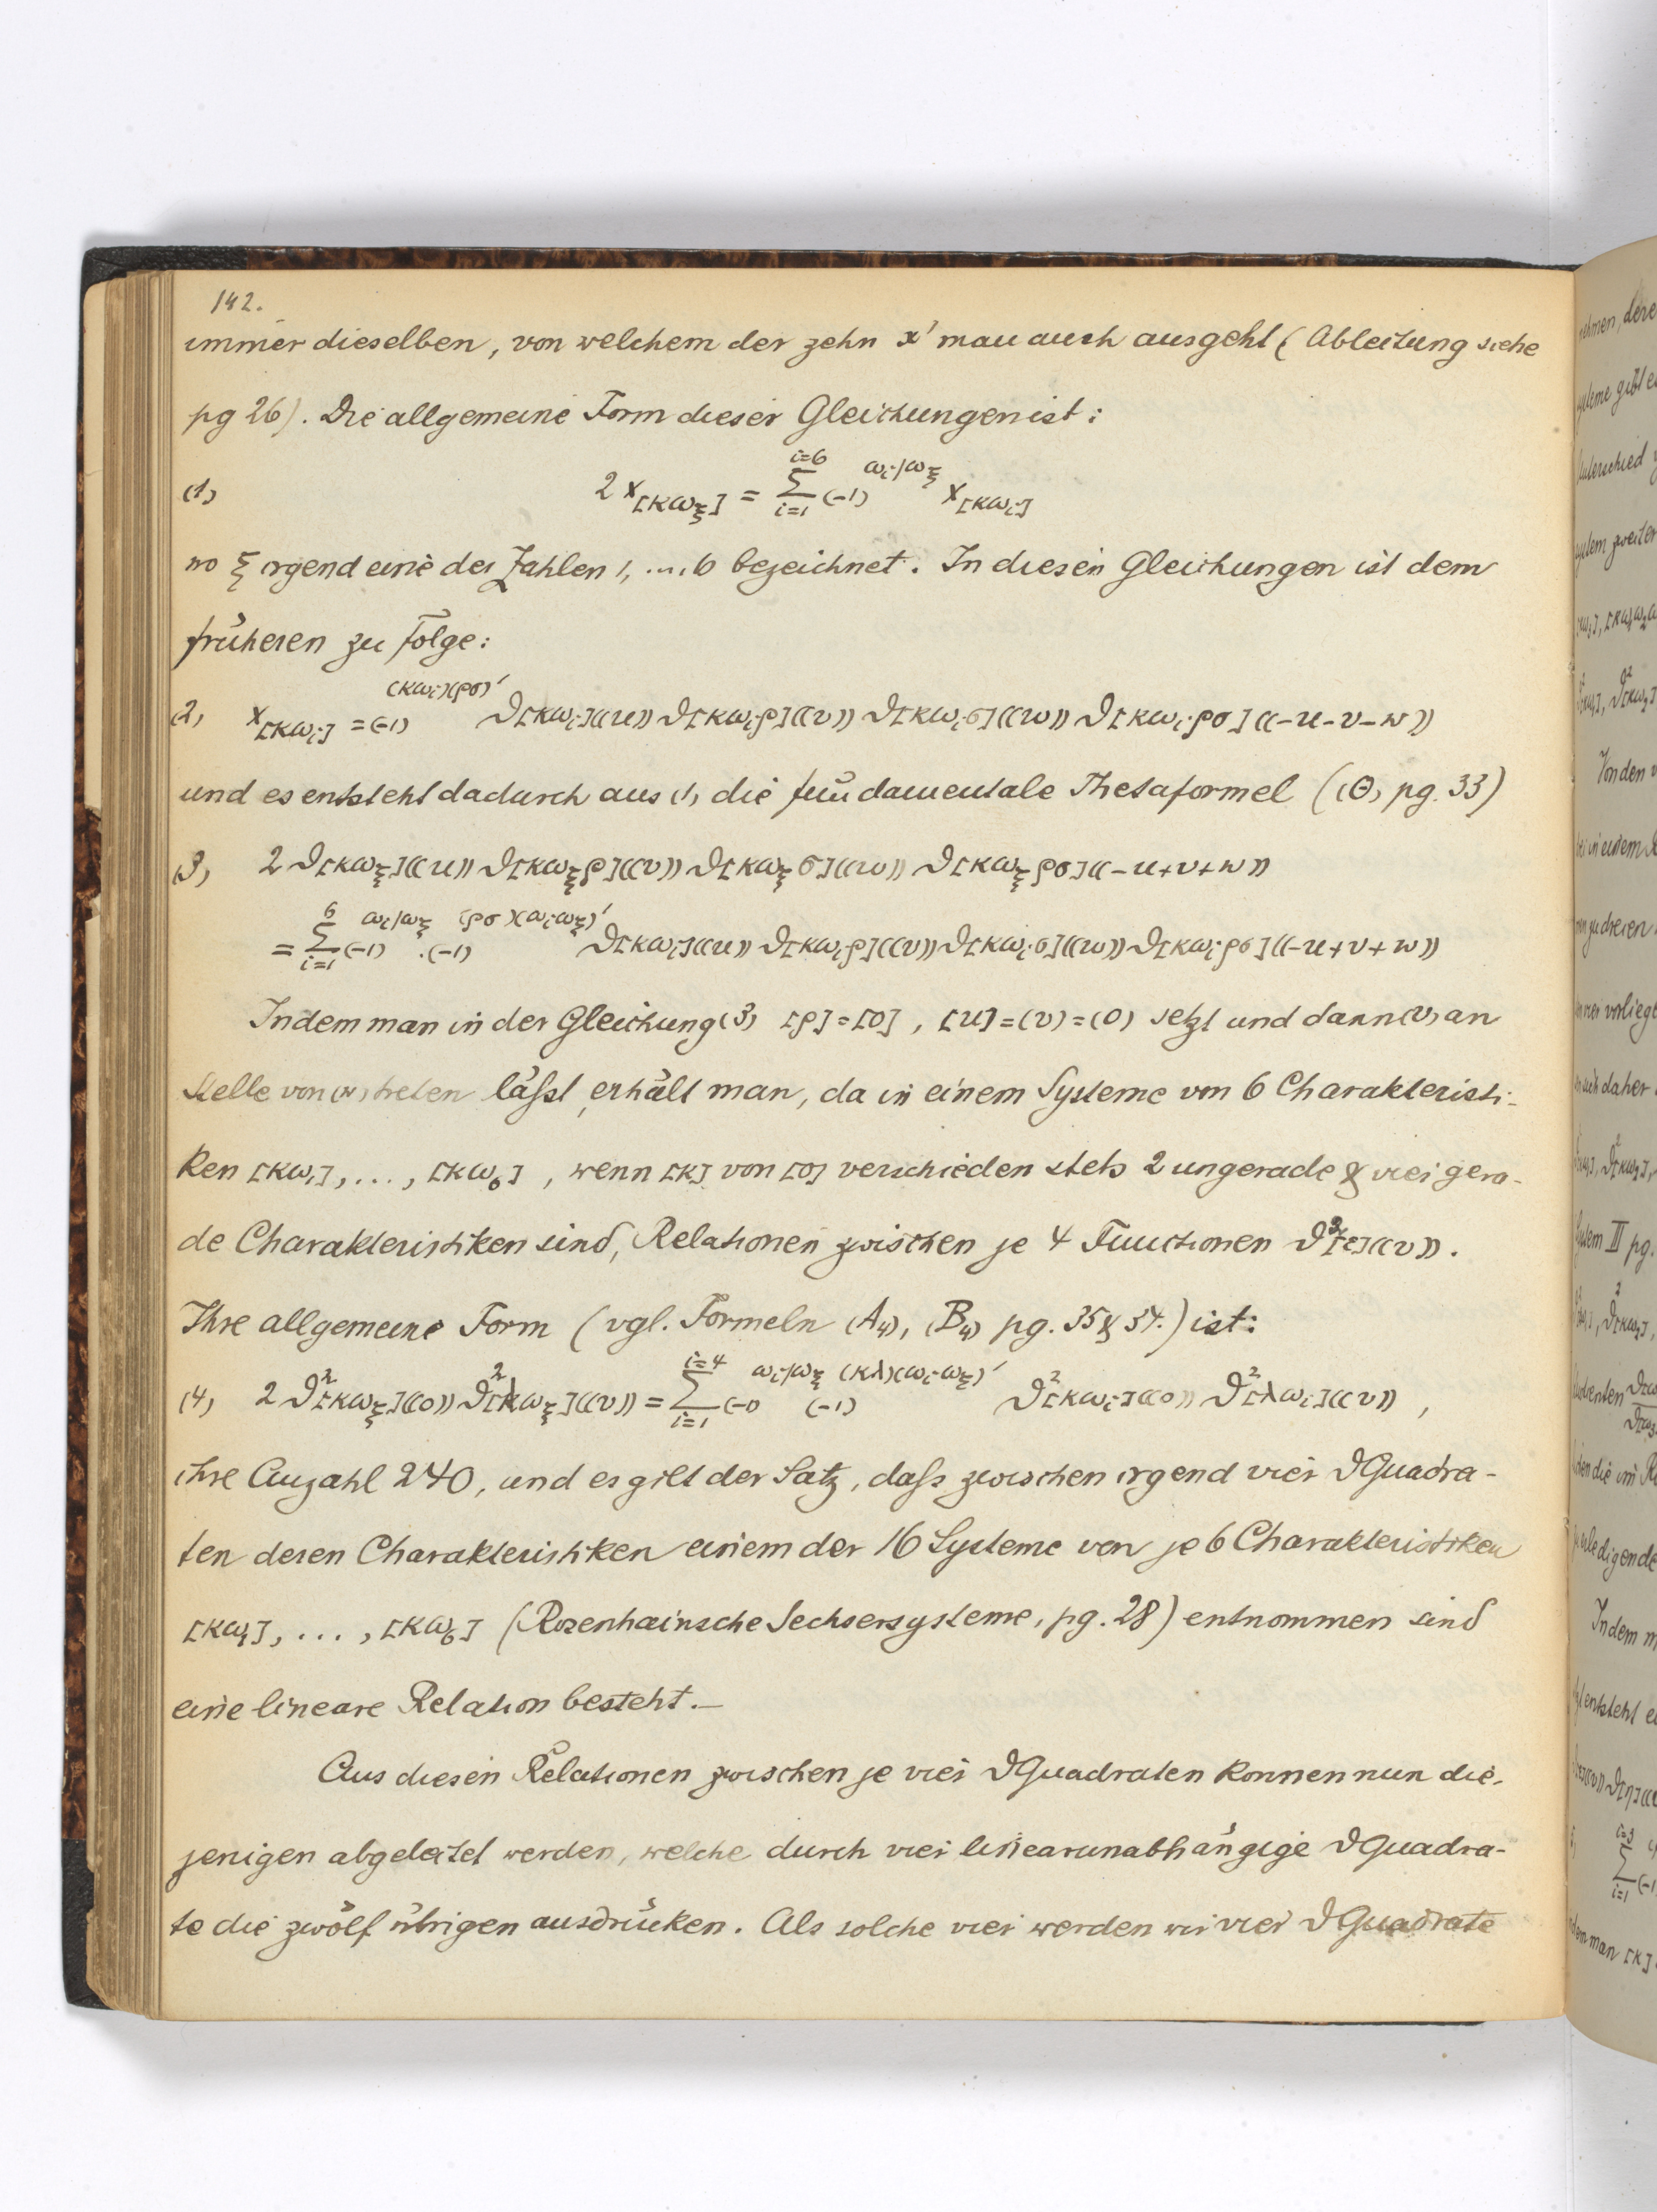 142.
immer dieselben, von welchem der zehn x' man auch ausgeht (Ableitung siehe
pg 26). Die allgemeine Form dieser Gleichungen ist:
(1) 2 x_[κω_ξ] = Σ_{i=1}^{i=6} (-1)^{ω_i/ω_ξ} x_[κω_i]
wo ξ irgend eine der Zahlen 1, ..., 6 bezeichnet. In diesen Gleichungen ist dem
früheren zu folge:
(2) x_[κω_i] = (-1)^{(κω_i)(ρσ)'} ϑ[κω_i]((u)) ϑ[κω_iρ]((v)) ϑ[κω_iσ]((w)) ϑ[κω_iρσ]((-u-v-w))
und es entsteht dadurch aus (1) die fundamentale Thetaformel ((Θ) pg. 33)
(3) 2 ϑ[κω_ξ]((u)) ϑ[κω_ξρ]((v)) ϑ[κω_ξσ]((w)) ϑ[κω_ξρσ]((-u+v+w))
= Σ_{i=1}^{6} (-1)^{ω_i/ω_ξ} . (-1)^{(ρσ)(ω_iω_ξ)'} ϑ[κω_i]((u)) ϑ[κω_iρ]((v)) ϑ[κω_iσ]((w)) ϑ[κω_iρσ]((-u+v+w))
Indem man in der Gleichung (3) [ρ]=[0], [u]=(v)=(0) setzt und dann (v) an
Stelle von (w) treten lässt, erhält man, da in einem Systeme von 6 Charakteristi-
ken [κω_1], ..., [κω_6], wenn [κ] von [0] verschieden stets 2 ungerade & vier gera-
de Charakteristiken sind, Relationen zwischen je 4 Functionen ϑ²[ε]((v)).
Ihre allgemeine Form (vgl. Formeln (A_4), (B_4) pg. 35 & 37.) ist:
(4) 2 ϑ²[κω_ξ]((0)) ϑ²[λω_ξ]((v)) = Σ_{i=1}^{i=4} (-1)^{ω_i/ω_ξ} (-1)^{(κλ)(ω_iω_ξ)'} ϑ²[κω_i]((0)) ϑ²[λω_i]((v)),
ihre Anzahl 240, und es gilt der Satz, dass zwischen irgend vier ϑQuadra-
ten deren Charakteristiken einem der 16 Systeme von je 6 Charakteristiken
[κω_1], ..., [κω_6] (Rosenhainsche Sechsersysteme, pg. 28) entnommen sind
eine lineare Relation besteht.—
Aus diesen Relationen zwischen je vier ϑQuadraten können nun die-
jenigen abgeleitet werden, welche durch vier linearunabhängige ϑQuadra-
te die zwölf übrigen ausdrücken. Als solche vier werden wir vier ϑQuadrate